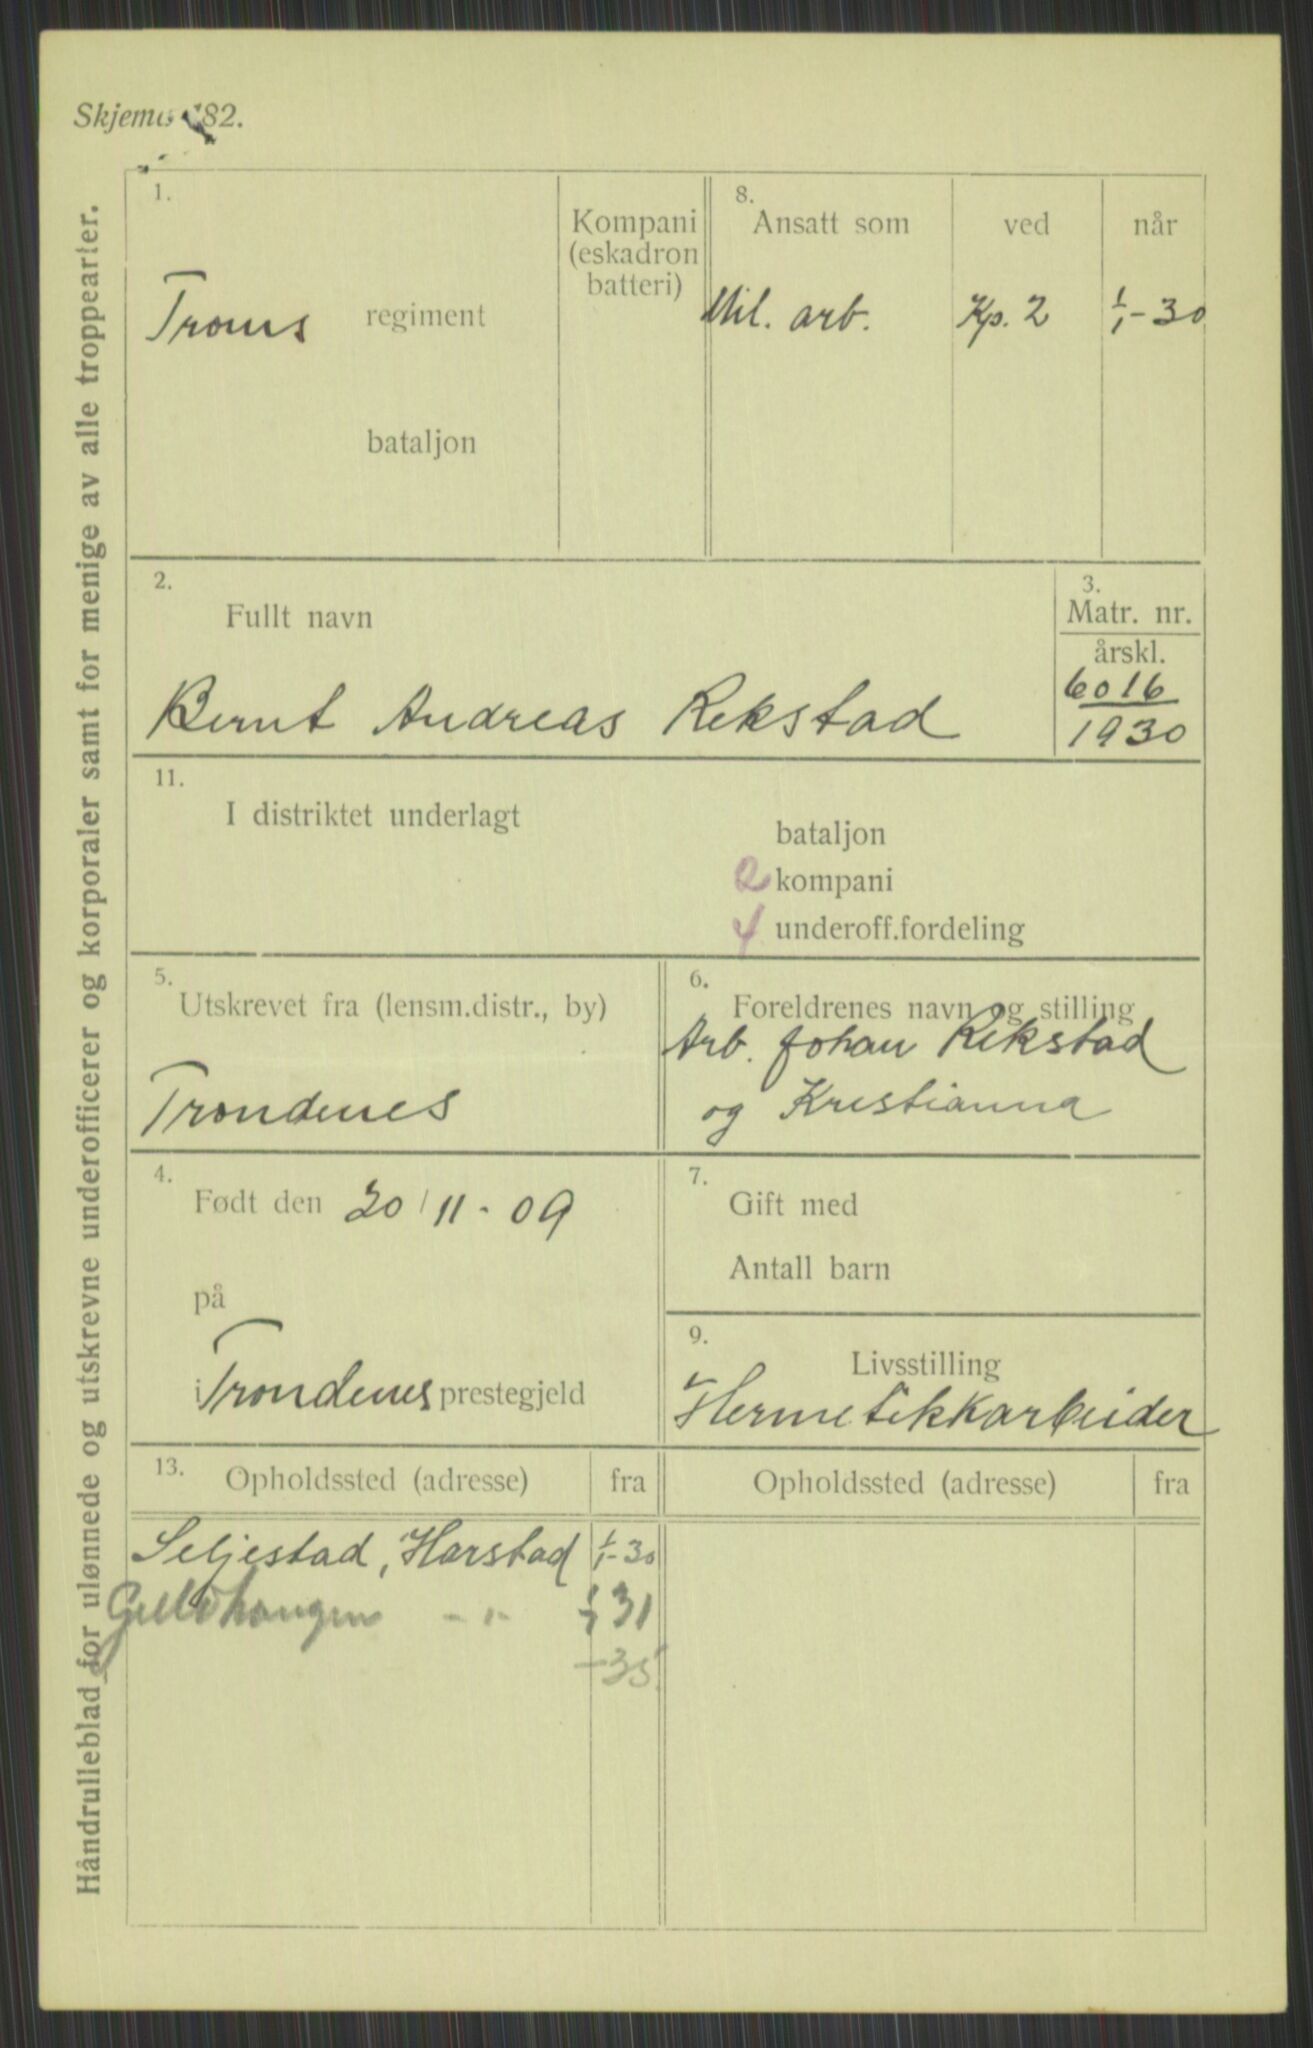 Skjema 82.
Håndrulleblad for ulønnede og utskrevne underofficerer og korporaler samt for menige av alle troppearter.
1.
Troms regiment
bataljon
Kompani
(eskadron
batteri)
8.
Ansatt som ved når
Mil. arb. Kp. 2 1/1-30
2.
Fullt navn
Bernt Andreas Rekstad
3.
Matr. nr.
årskl.
6016
1930
11.
I distriktet underlagt
bataljon
2 kompani
4 underoff.fordeling
5.
Utskrevet fra (lensm.distr., by)
Trondenes
6.
Foreldrenes navn og stilling
Arb. Johan Rekstad
og Kristianna
4.
Født den 20/11-09
på
i Trondenes prestegjeld
7.
Gift med
Antall barn
9.
Livsstilling
Hermetikkarbeider
13.
Opholdssted (adresse) fra Opholdssted (adresse) fra
Seljestad, Harstad 1/1-30
-"- 31
-35